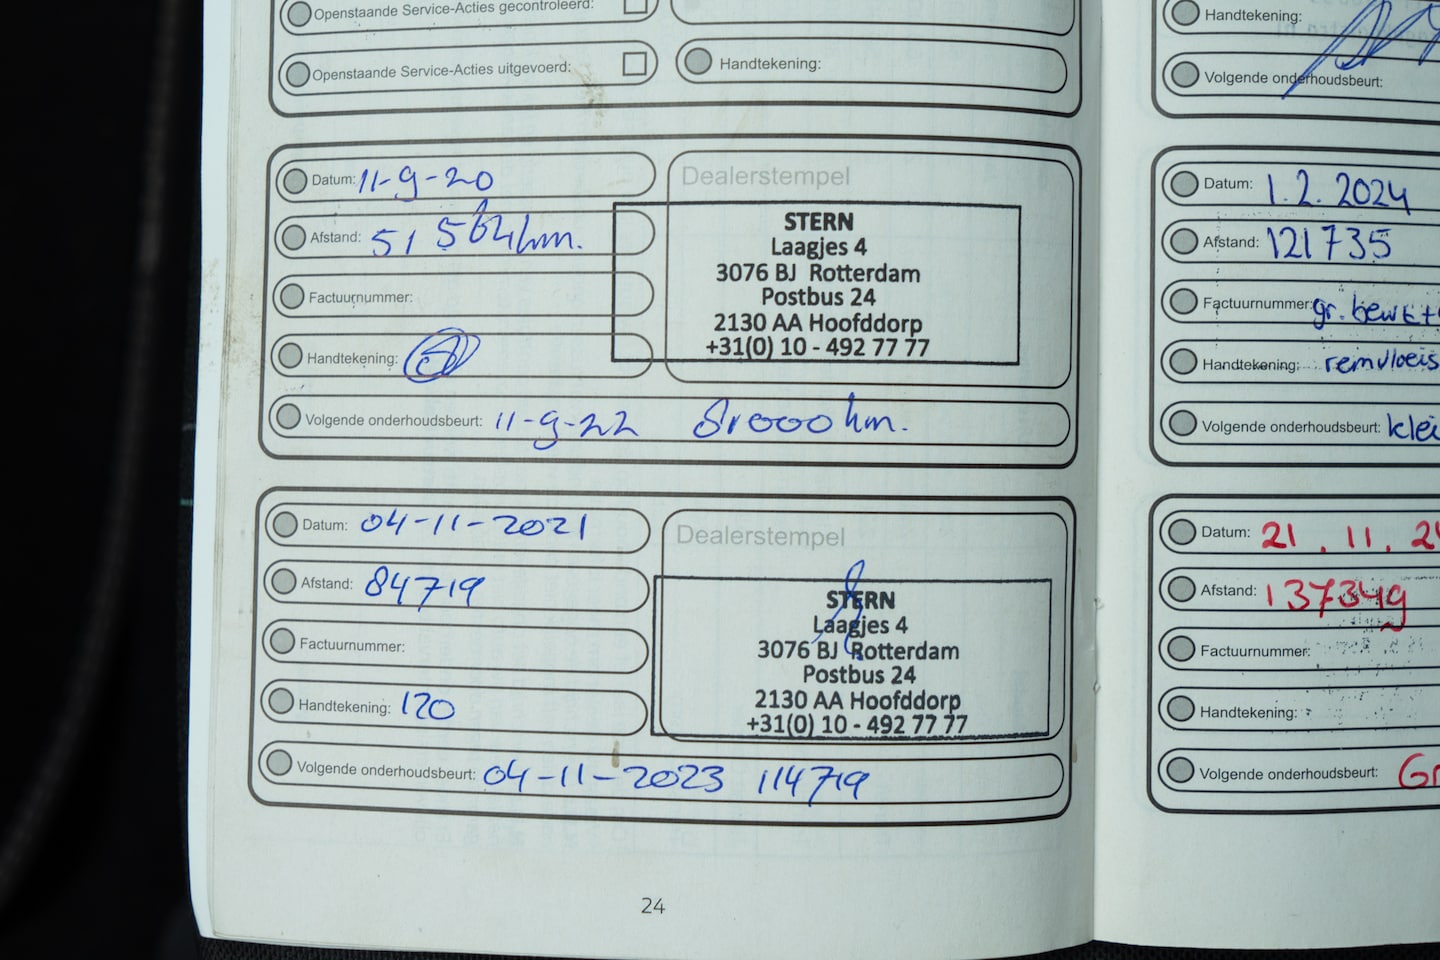 Openstaande Service-Acties gecontroleerd:
Openstaande Service-Acties uitgevoerd:
Handtekening:
Datum: 11-9-20
Afstand: 51 564 km.
Factuurnummer:
Handtekening:
Volgende onderhoudsbeurt: 11-9-22 81000 km.
Dealerstempel
STERN
Laagjes 4
3076 BJ Rotterdam
Postbus 24
2130 AA Hoofddorp
+31(0) 10 - 492 77 77
Datum: 04-11-2021
Afstand: 84719
Factuurnummer:
Handtekening: 120
Volgende onderhoudsbeurt: 04-11-2023 114719
Dealerstempel
STERN
Laagjes 4
3076 BJ Rotterdam
Postbus 24
2130 AA Hoofddorp
+31(0) 10 - 492 77 77
24
Handtekening:
Volgende onderhoudsbeurt:
Datum: 1.2.2024
Afstand: 121735
Factuurnummer: gr. beurt +
Handtekening: remvloeis
Volgende onderhoudsbeurt: klei
Datum: 21.11.24
Afstand: 137349
Factuurnummer:
Handtekening:
Volgende onderhoudsbeurt: Gr